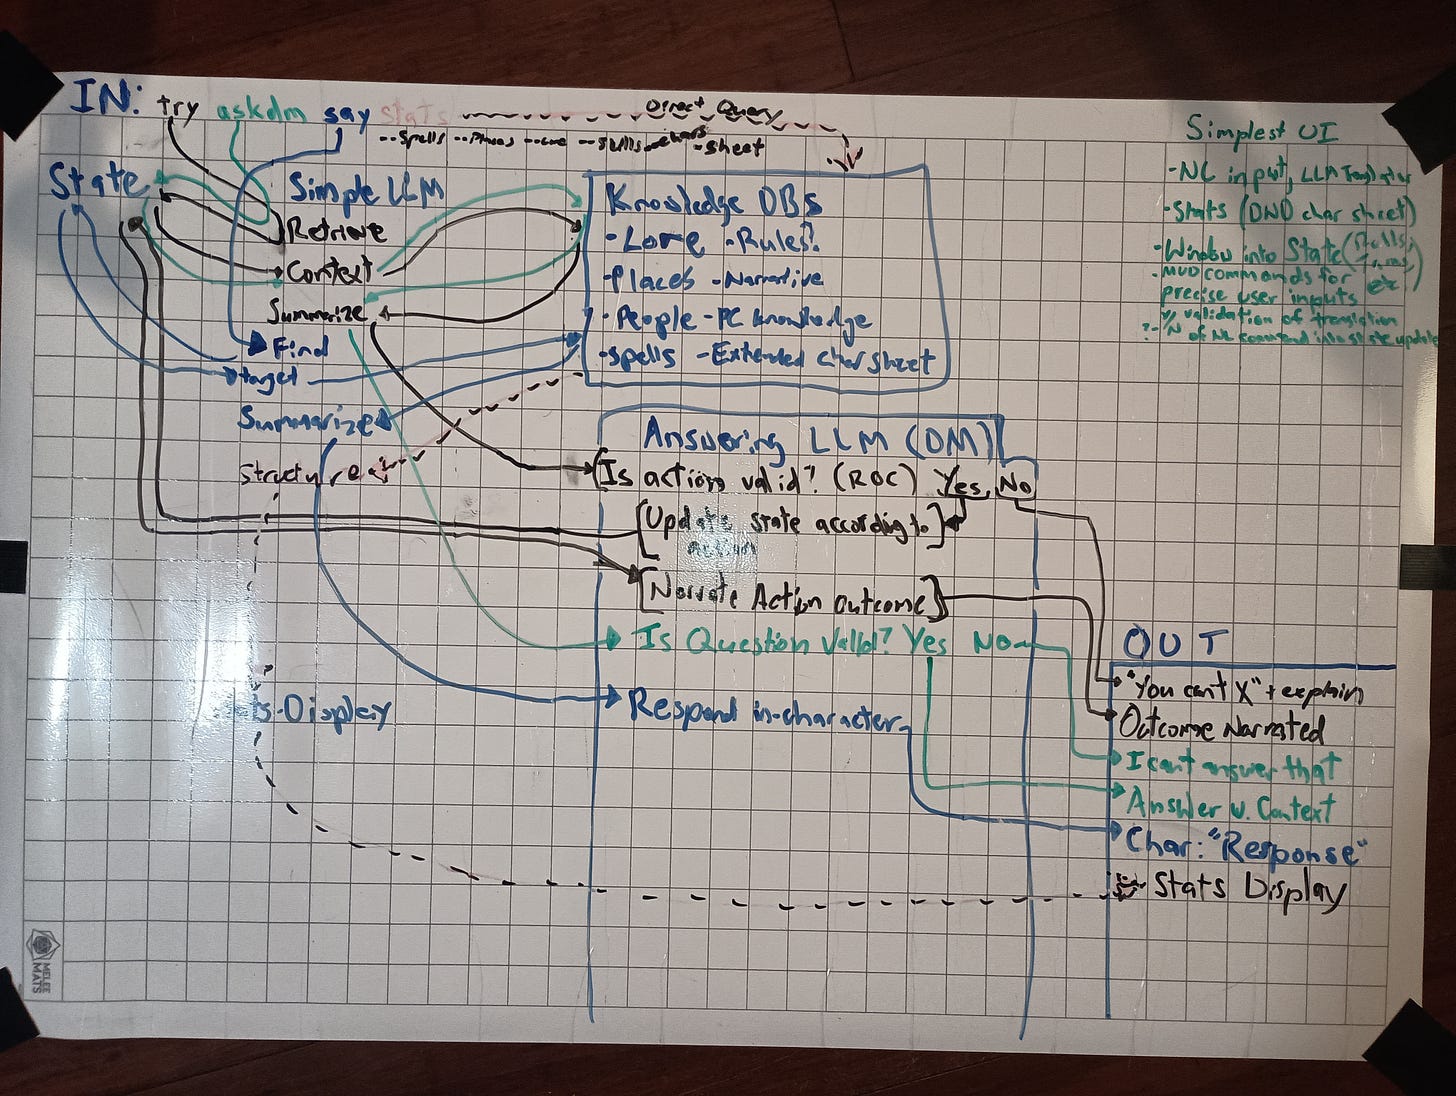 IN: try askdm say stats Direct Query
--Spells --Places --Lore --Skills --chars --sheet
State
Simple LLM
Retrieve
Context
Summarize
Find
target
Summarize
Structure
-Display
Knowledge DBs
-Lore -Rules?
-Places -Narrative
-People -PC knowledge
-spells -Extended char sheet
Answering LLM (DM)
Is action valid? (ROC) Yes No
Update state according to
action
Narrate Action outcome
Is Question Valid? Yes No
Respond in-character
Simplest UI
-NL input, LLM Translator
-Stats (DND char sheet)
-Window into State (
-MUD commands for
precise user inputs
w/ validation of translation
of NL command into state update
OUT
"You cant X" + explain
Outcome Narrated
I cant answer that
Answer w. Context
Char: "Response"
Stats Display
MELEE
MATS